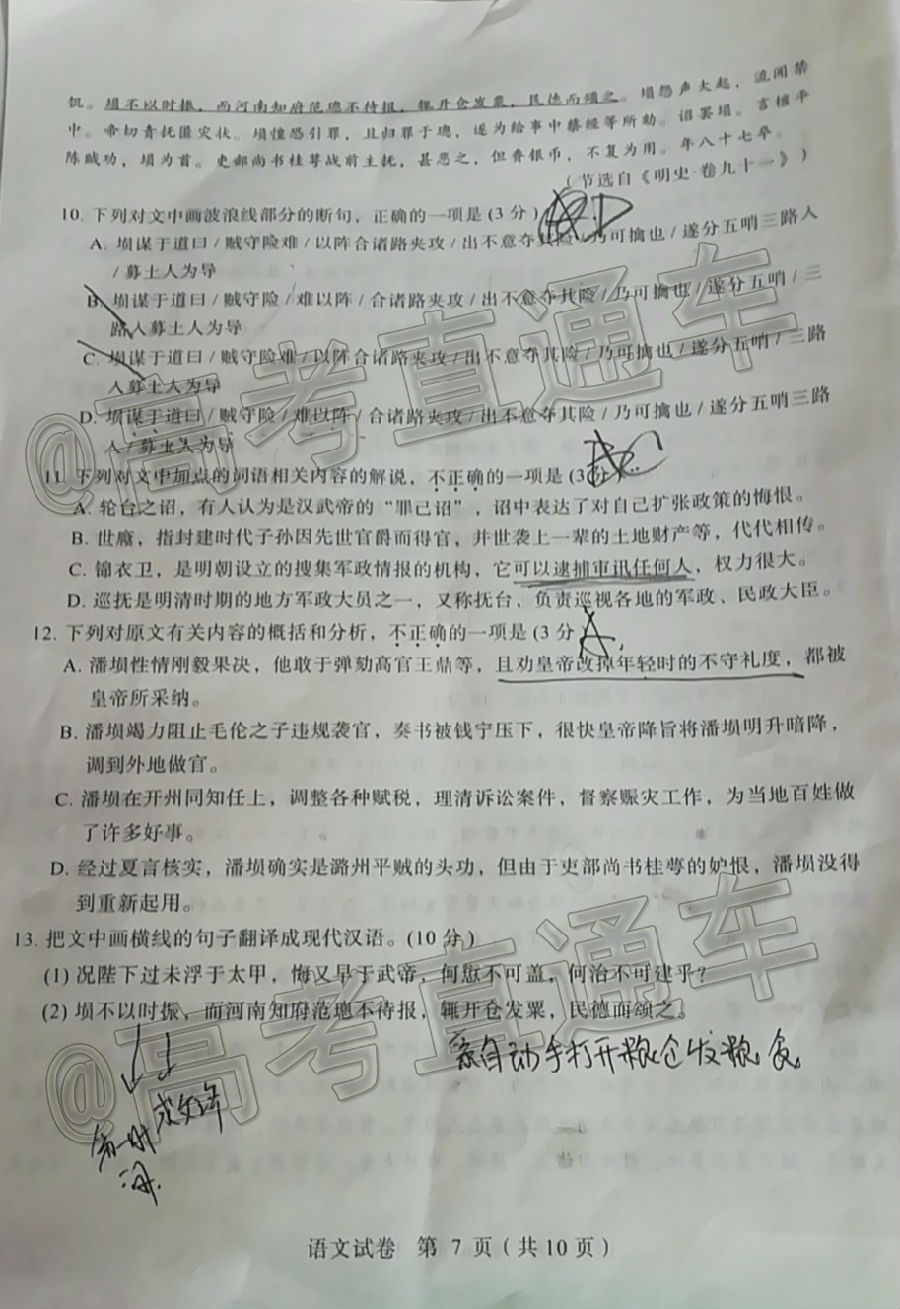 饥。埙不以时振，而河南知府范璁不待报，辄开仓发粟，民德而颂之。埙怨声大起，流闻禁
中。帝切责抚匿灾状。埙惶惑引罪，且归罪于璁，遂为给事中蔡经等所劾。诏罢埙。言榷平
陈贼功，埙为首。吏部尚书桂萼战前主抚，甚恶之，但赉银币，不复为用。年八十七卒。
（节选自《明史·卷九十一》）
10. 下列对文中画波浪线部分的断句，正确的一项是 (3 分)
D
A. 埙谋于道曰 / 贼守险难 / 以阵合诸路夹攻 / 出不意夺其险 / 乃可擒也 / 遂分五哨三路人
/ 募土人为导
B. 埙谋于道曰 / 贼守险 / 难以阵 / 合诸路夹攻 / 出不意夺其险 / 乃可擒也 / 遂分五哨 / 三
路人募土人为导
C. 埙谋于道曰 / 贼守险难 / 以阵合诸路夹攻 / 出不意夺其险 / 乃可擒也 / 遂分五哨 / 三路
人募土人为导
D. 埙谋于道曰 / 贼守险 / 难以阵 / 合诸路夹攻 / 出不意夺其险 / 乃可擒也 / 遂分五哨三路
人 / 募土人为导
11. 下列对文中加点的词语相关内容的解说，不正确的一项是 (3 分)
C
A. 轮台之诏，有人认为是汉武帝的“罪己诏”，诏中表达了对自己扩张政策的悔恨。
B. 世廕，指封建时代子孙因先世官爵而得官，并世袭上一辈的土地财产等，代代相传。
C. 锦衣卫，是明朝设立的搜集军政情报的机构，它可以逮捕审讯任何人，权力很大。
D. 巡抚是明清时期的地方军政大员之一，又称抚台，负责巡视各地的军政、民政大臣。
12. 下列对原文有关内容的概括和分析，不正确的一项是 (3 分)
A
A. 潘埙性情刚毅果决，他敢于弹劾高官王鼎等，且劝皇帝改掉年轻时的不守礼度，都被
皇帝所采纳。
B. 潘埙竭力阻止毛伦之子违规袭官，奏书被钱宁压下，很快皇帝降旨将潘埙明升暗降，
调到外地做官。
C. 潘埙在开州同知任上，调整各种赋税，理清诉讼案件，督察赈灾工作，为当地百姓做
了许多好事。
D. 经过夏言核实，潘埙确实是潞州平贼的头功，但由于吏部尚书桂萼的妒恨，潘埙没得
到重新起用。
13. 把文中画横线的句子翻译成现代汉语。(10 分)
(1) 况陛下过未浮于太甲，悔又早于武帝，何愆不可盖，何治不可建乎？
(2) 埙不以时振，而河南知府范璁不待报，辄开仓发粟，民德而颂之。
亲自动手打开粮仓发粮食
语文试卷 第 7 页（共 10 页）
@高考直通车
@高考直通车